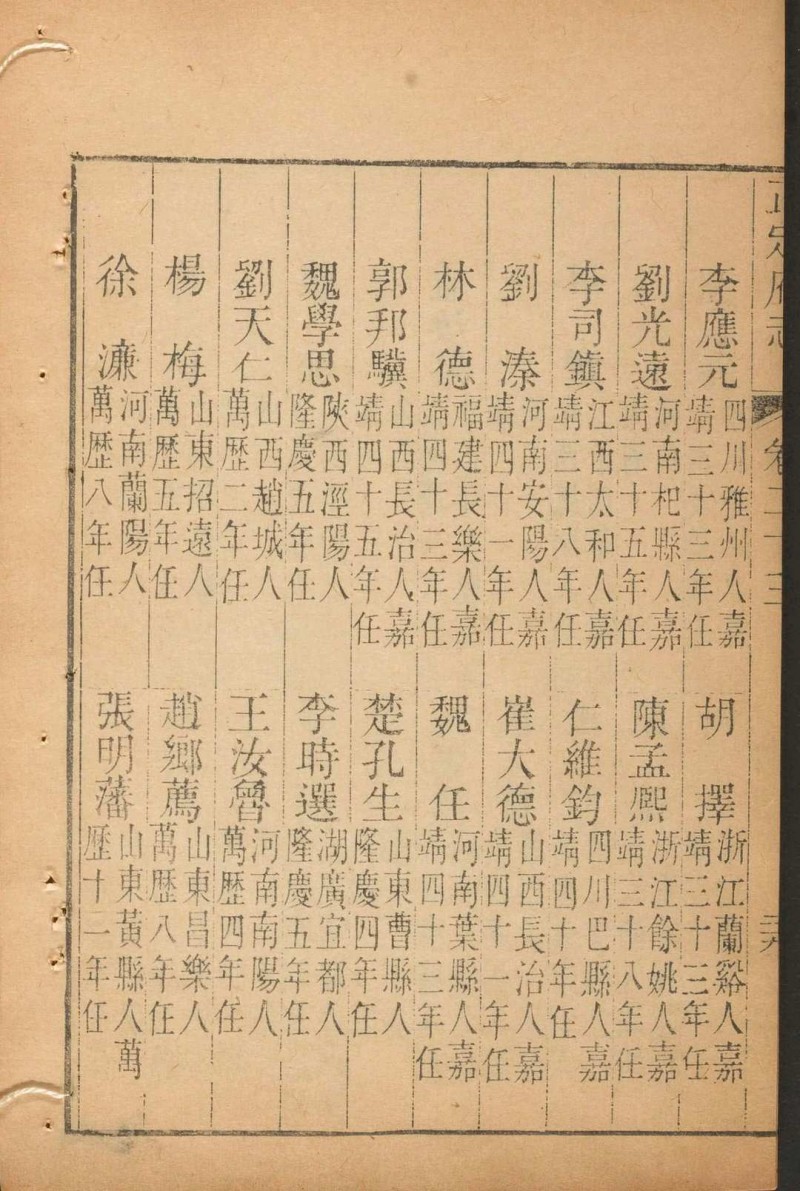 正定府志
卷二十三
李應元 四川雅州人嘉靖三十三年任
胡擇 浙江蘭谿人嘉靖三十三年任
劉光遠 河南杞縣人嘉靖三十五年任
陳孟熈 浙江餘姚人嘉靖三十八年任
李司鎮 江西太和人嘉靖三十八年任
仁維鈞 四川巴縣人嘉靖四十年任
劉溱 河南安陽人嘉靖四十一年任
崔大德 山西長治人嘉靖四十一年任
林德 福建長樂人嘉靖四十三年任
魏任 河南葉縣人嘉靖四十三年任
郭邦驥 山西長治人嘉靖四十五年任
楚孔生 山東曹縣人隆慶四年任
魏學思 陝西涇陽人隆慶五年任
李時選 湖廣宜都人隆慶五年任
劉天仁 山西趙城人萬歷二年任
王汝魯 河南南陽人萬歷四年任
楊梅 山東招遠人萬歷五年任
趙鄉薦 山東昌樂人萬歷八年任
徐濂 河南蘭陽人萬歷八年任
張明藩 山東黃縣人萬歷十一年任